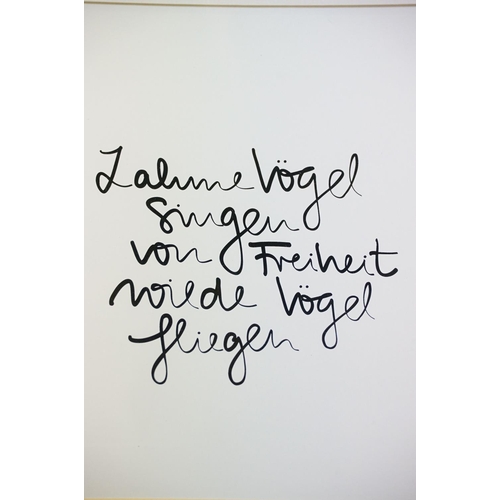 Zahme Vögel
singen
von Freiheit
wilde Vögel
fliegen